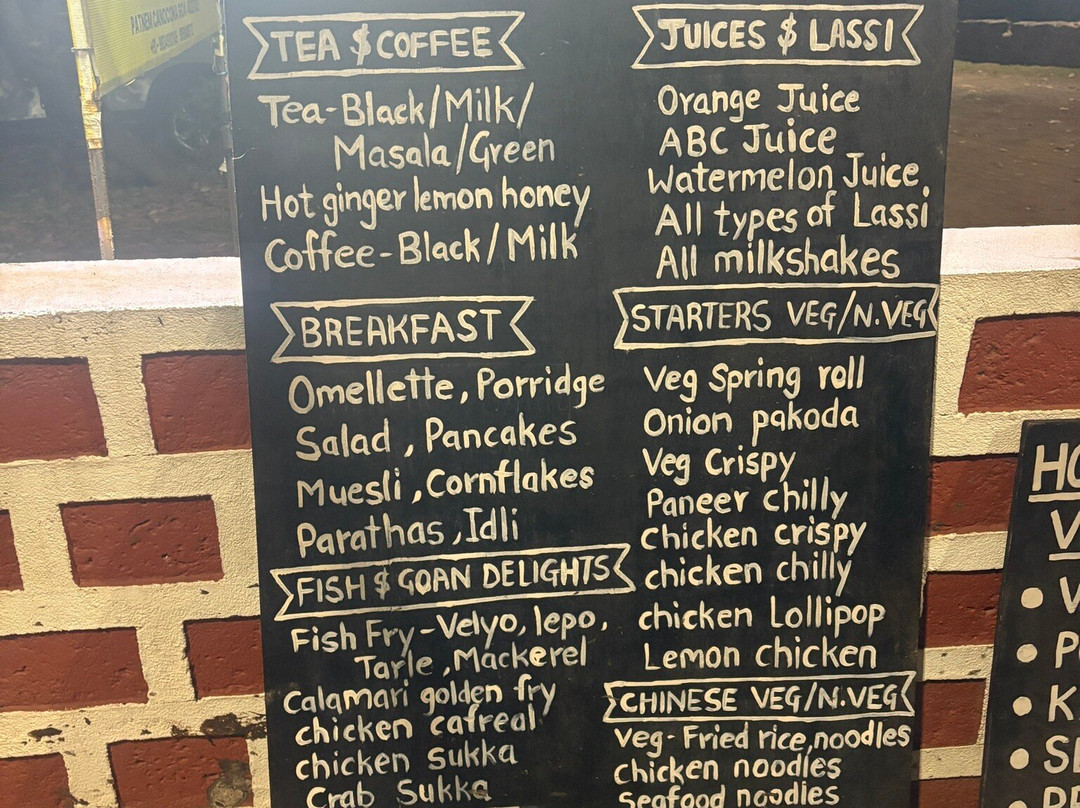 PATNEM CANCONA GOA
TEA $ COFFEE
Tea-Black/Milk/
Masala/Green
Hot ginger lemon honey
Coffee-Black/Milk
BREAKFAST
Omellette, Porridge
Salad, Pancakes
Muesli, Cornflakes
Parathas, Idli
FISH $ GOAN DELIGHTS
Fish Fry-Velyo, lepo,
Tarle, Mackerel
Calamari golden fry
chicken cafreal
chicken Sukka
Crab Sukka
JUICES $ LASSI
Orange Juice
ABC Juice
Watermelon Juice
All types of Lassi
All milkshakes
STARTERS VEG/N.VEG
Veg Spring roll
Onion pakoda
Veg Crispy
Paneer chilly
chicken crispy
chicken chilly
chicken Lollipop
Lemon chicken
CHINESE VEG/N.VEG
Veg-Fried rice, noodles
Chicken noodles
Seafood noodles